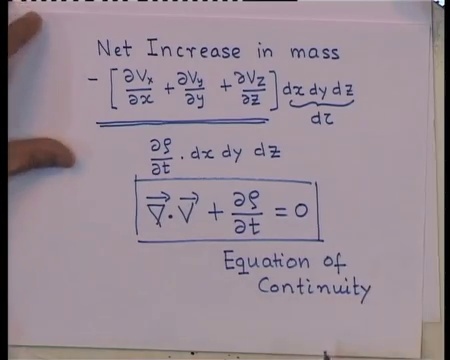 Net Increase in mass
- [ ∂Vx/∂x + ∂Vy/∂y + ∂Vz/∂z ] dx dy dz
dτ
∂ρ/∂t . dx dy dz
∇⃗ · V⃗ + ∂ρ/∂t = 0
Equation of
Continuity